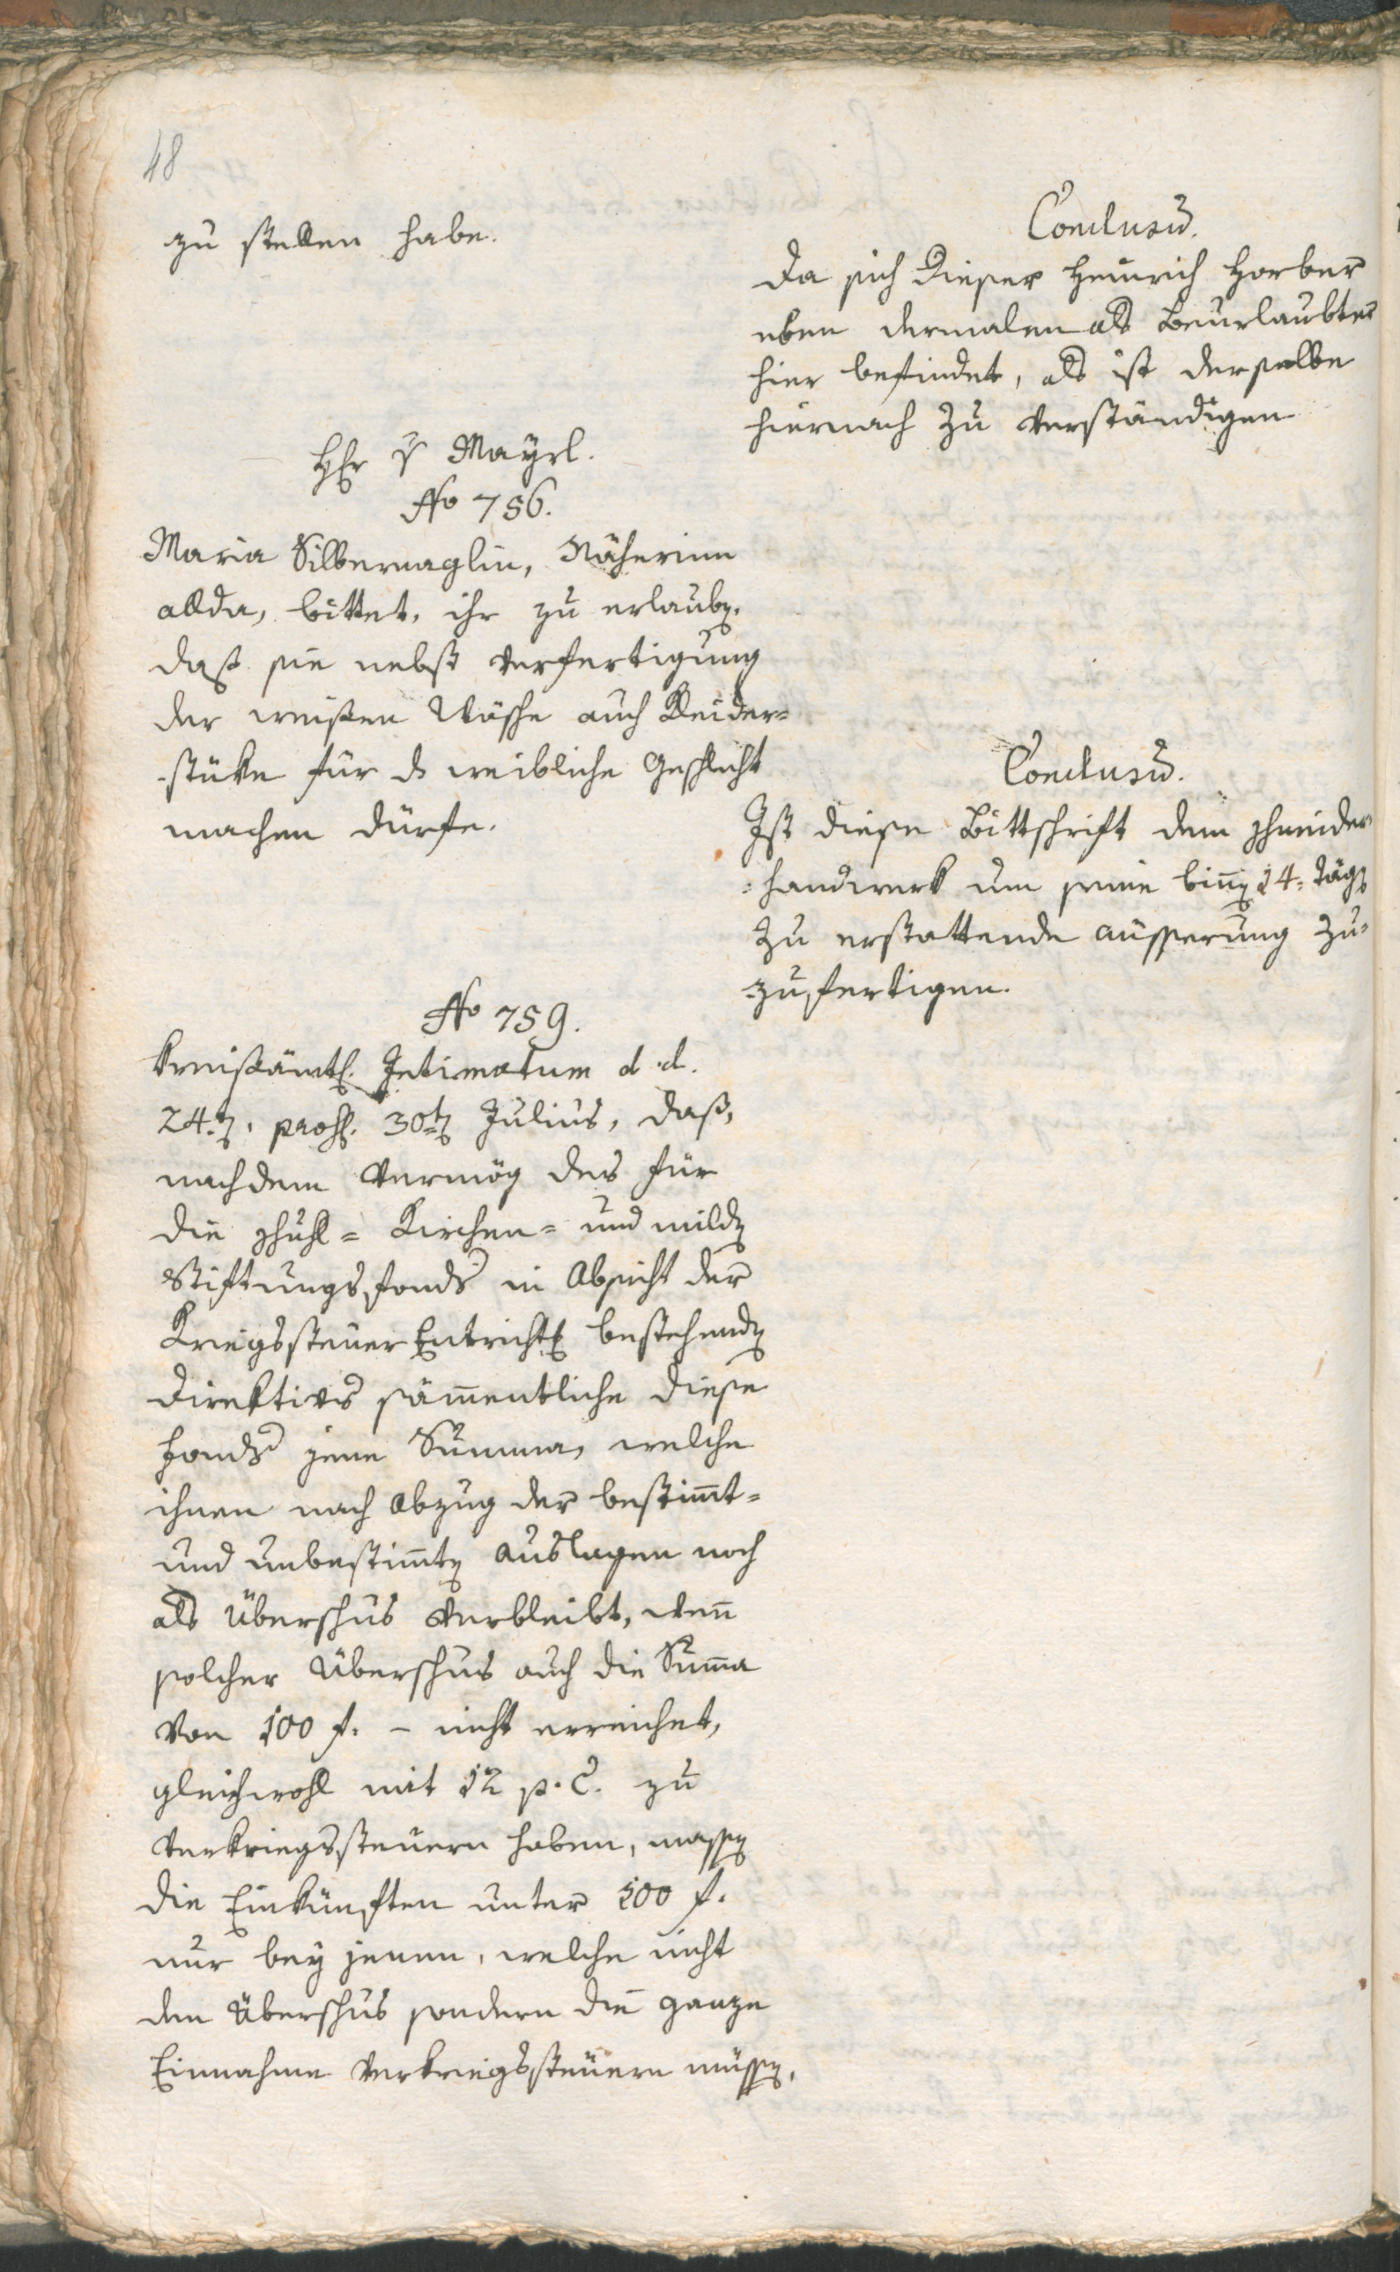 48
zu stellen habe.
Conclusum.
Da sich dieser Heinrich Horber
eben dermalen als Beurlaubter
hier befindet, als ist derselbe
hiernach zu verständigen
Mayrl.
No 756.
Maria Silbernaglin, Näherinn
allda, bittet, ihr zu erlauben,
daß sie nebst Verfertigung
der weißen Wäsche auch Kleider-
-stüke für das weibliche Geschlecht
machen dürfe.
Conclusum.
Ist diese Bittschrift dem Schneider
-handwerk um seine binnen 14. Tägen
zu erstattende äusserung zu-
zufertigen.
No 759.
Kreisämtl. Intimatum d. d.
24.ten, praes. 30ten Julius, daß,
nachdem Vermög des für
die Schull- Kirchen- und milden
Stiftungsfonds in Absicht der
Kriegssteuer Entrichtung bestehenden
Direktivs sämmentliche diese
Fonds jene Summa, welche
ihnen nach Abzug der bestimmt-
und unbestimmten Auslagen noch
als Überschus verbleibt, wenn
solcher Überschus auch die Summa
von 100 f. – nicht erreichet,
gleichwohl mit 12 p. C. zu
verkriegssteuern haben, massen
die Einkünften unter 100 f.
nur bey jenen, welche nicht
den Überschus sondern die ganze
Einnahme verkriegssteuern müssen,